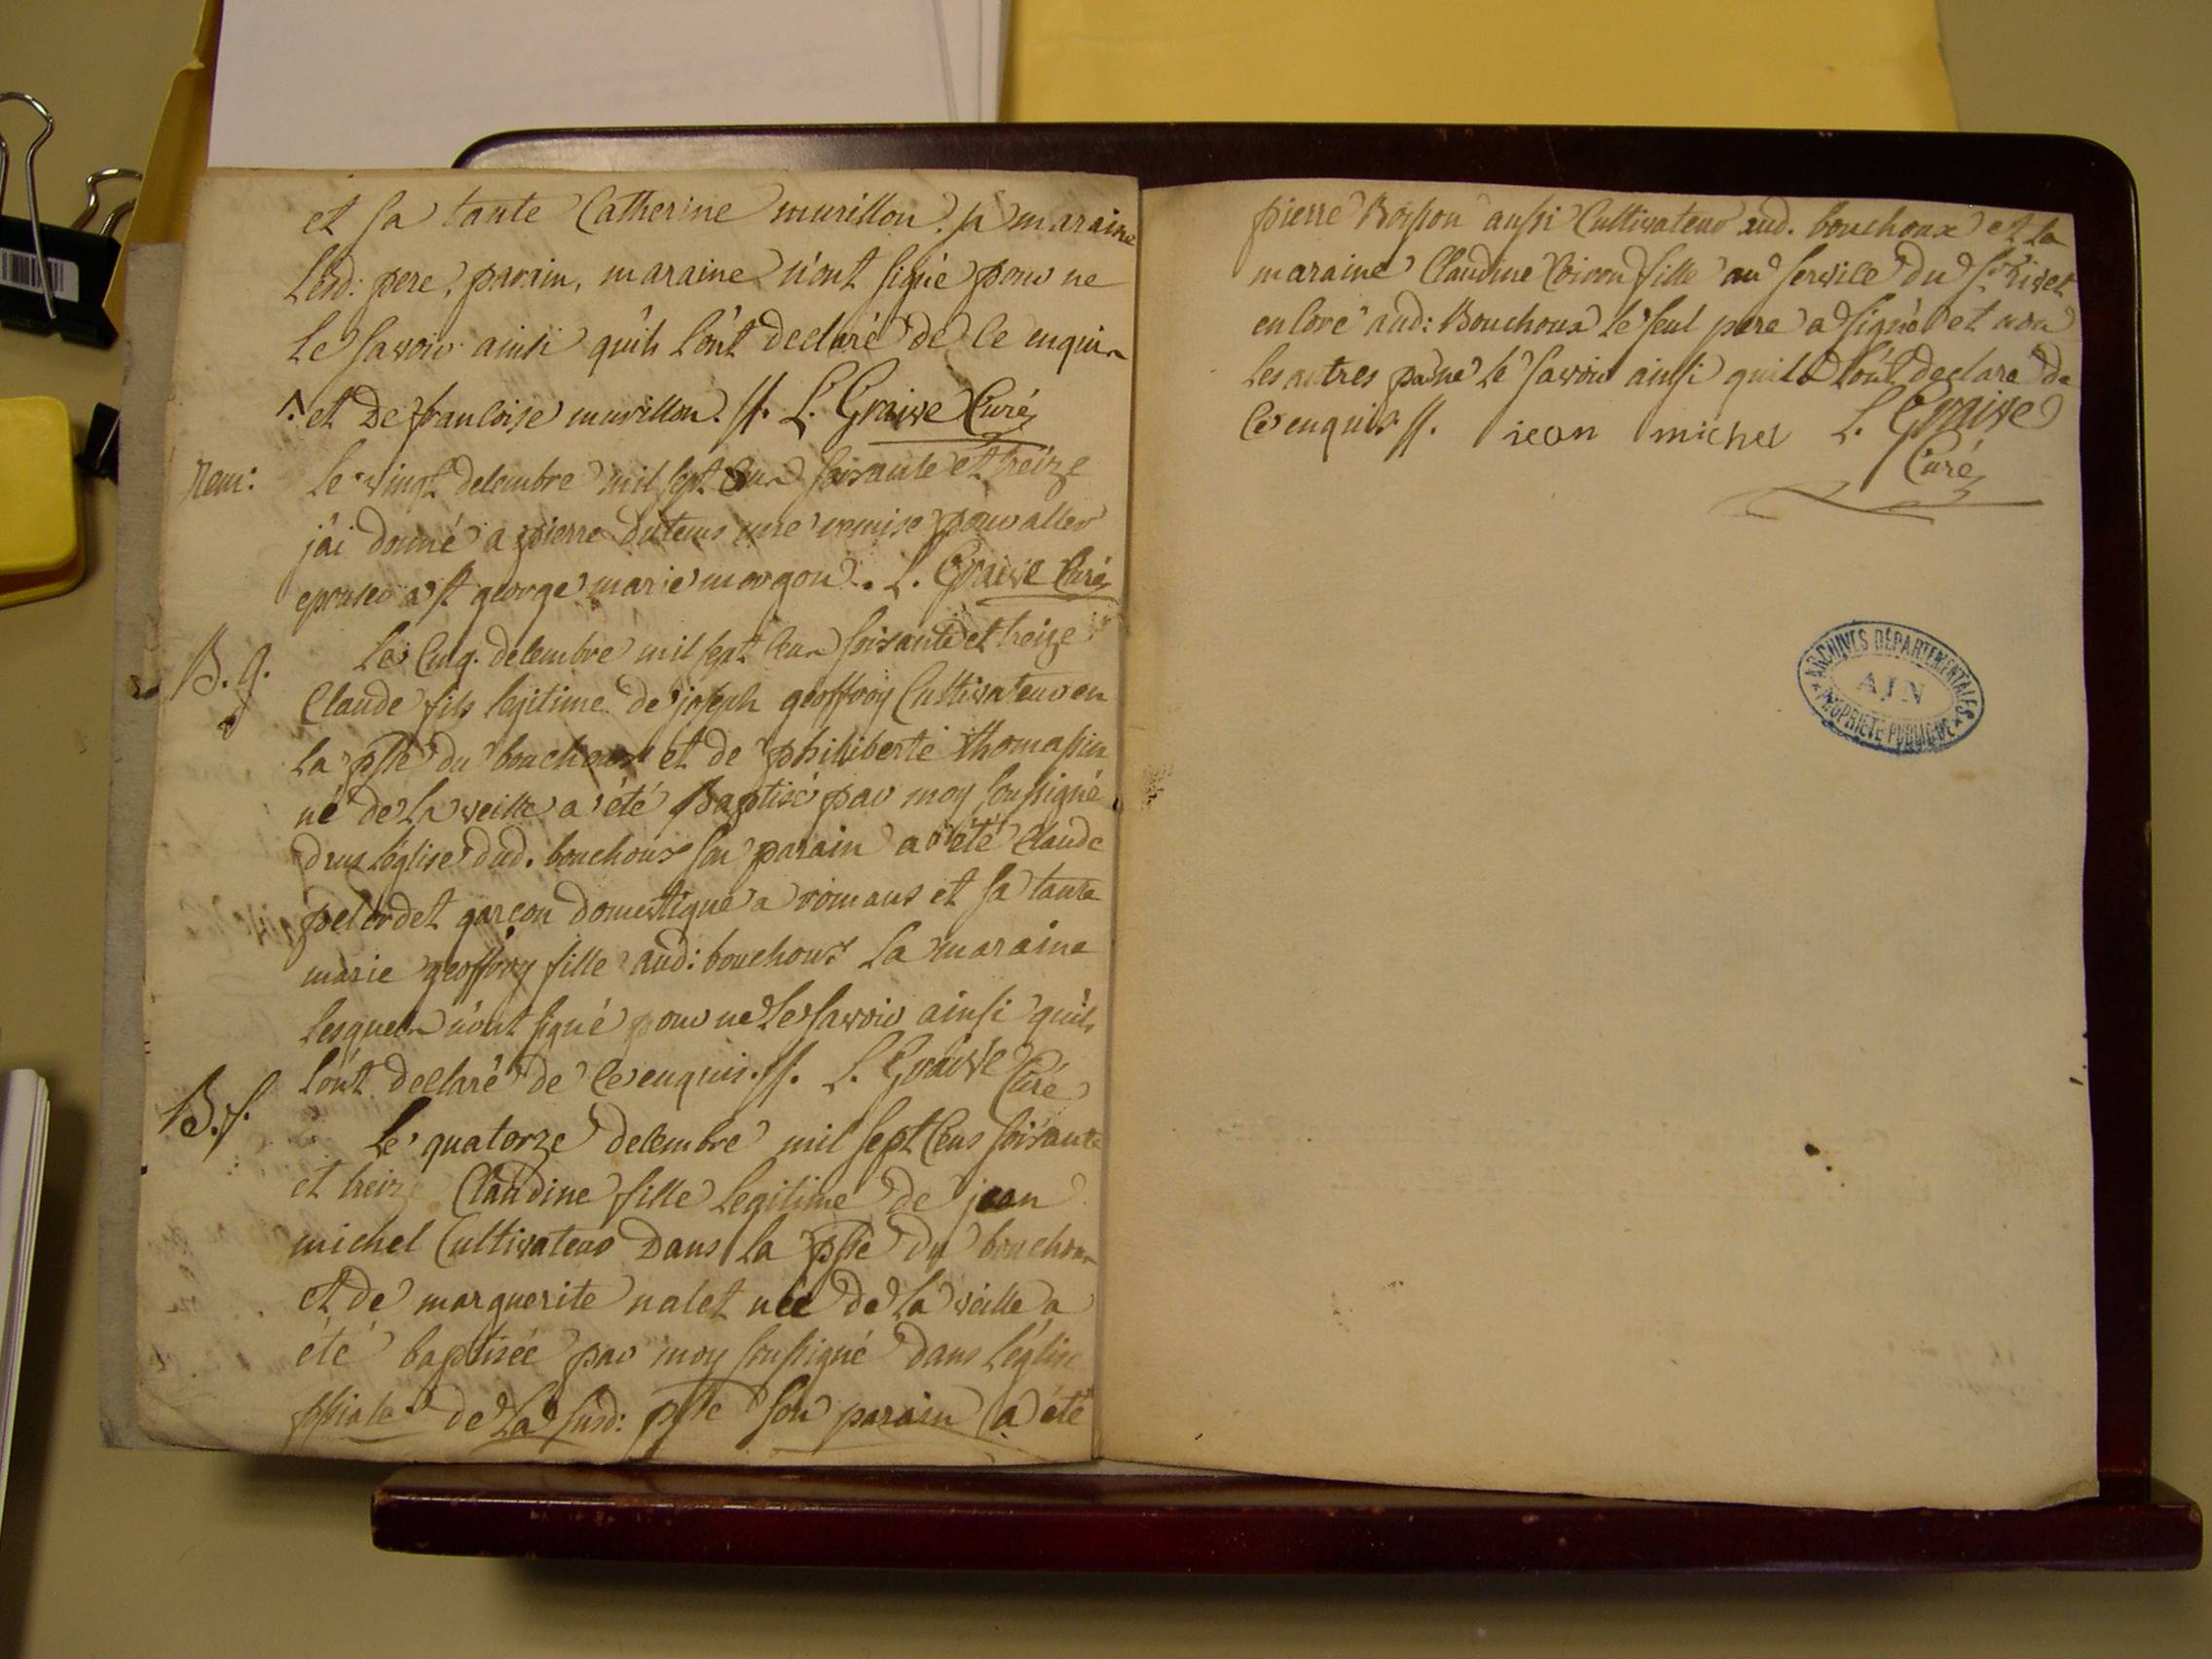 et sa tante Catherine murillon. sa maraine
Lesd: pere, parain, maraine n'ont signé pour ne
Le savoir ainsi quils l'ont declaré de ce enquis
et De françoise murillon. //. L. Graive Curé
Rem:
Le vingt decembre mil sept cens soisante et treize
j'ai donné a pierre dutems une remise pour aller
epouser a st george marie morgon. L. Graive Curé
B. g.
Le Cinq. decembre mil sept cens soisante et treize
Claude fils legitime de joseph geoffroy Cultivateur en
la psse du bouchoux et de philiberte thomassin
né de la veille a été Baptisé par moy soussigné
dans l'église dud. bouchoux son parain a été Claude
pelordet garçon domestique a romans et sa tante
marie geoffroy fille aud: bouchoux la maraine
lesquels n'ont signé pour ne Le savoir ainsi quils
l'ont declaré de ce enquis. //. L. Graive Curé
B. f.
Le quatorze decembre mil sept Cens soisante
et treize Claudine fille legitime de jean
michel Cultivateur Dans la psse du bouchoux
et de marguerite nalet née de la veille a
été baptisée par moy soussigné dans l'église
pssiale de la susd: psse son parain a été
pierre Boisson aussi Cultivateur aud. bouchoux et la
maraine Claudine fille au service du Sr. Rivet
encore aud: Bouchoux le seul pere a signé et non
Les autres pr ne le savoir ainsi quils l'ont declaré de
ce enquis //. jean michel L. Graive
Curé
ARCHIVES DÉPARTEMENTALES
AIN
PROPRIÉTÉ PUBLIQUE